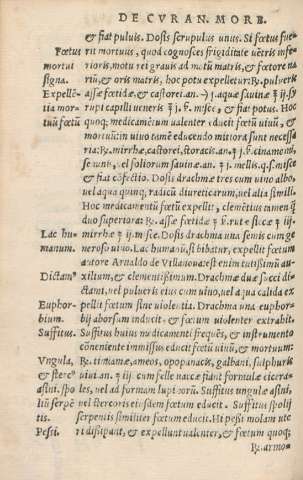 DE CVRAN. MORB.
& fiat puluis. Dosis scrupulus unus. Si fœtus fue-
Fœtus rit mortuus, quod cognosces frigiditate uẽtris infe-
mortui rioris, motu retgrauis ad motũ matris, & fœtore na
signa. riũ, & oris matris, hoc potu expelletur: ℞. pulueris
Expellẽ- assæ fœtidæ, & castorei an. ʒ j. aquæ sauinæ ℥ ij. sy
tia mor- rupi capilli ueneris ℥ j. ß. misce, & fiat potus. Hoc
tuũ fœtũ quoq; medicamẽtum ualenter educit fœtũ uiuũ, &
mortuũ: in uiuo tamẽ educendo mitiora sunt necessa
ria: ℞. mirrhæ, castorei, storacis, an. ʒ j. ß. cinamomi,
se unũ, uel foliorum sauinæ an. ʒ j. mellis. q. s. misce
& fiat cõfectio. Dosis drachmæ tres cum uino albo,
uel aqua quinq; radicũ diureticarum, uel alia simili.
Hoc medicamentũ fœtũ expellit, clemẽtius tamen
duo superiora: ℞. assæ fœtidæ rutæ siccæ ʒ iij.
Lac hu- mirrhæ ʒ ij. misce. Dosis drachma una semis cum ge
manum. neroso uino. Lac humanũ, si bibatur, expellit fœtum
autore Arnaldo de Villanoua: est enim tutissimũ au-
Dictam° xilium, & clementissimum. Drachmæ duæ succi di-
ctami, uel pulueris eius cum uino, uel aqua calida ex
Euphor- pellit fœtum sine uiolentia. Drachma una euphor-
bium. bij aborsum inducit, & fœtum uiolenter extrahit.
Suffitus. Suffitus huius medicamenti frequẽs, & instrumento
cõueniente immissus educit fœtũ uiuũ, & mortuum:
Vngula, ℞. timiamæ, ameos, opopanacis, galbani, sulphuris
& sterc° uiui an. ʒ iij. cum felle uaccæ fiant formulæ cicera-
asini. spo les, uel ad formam lupinorũ. Suffitus ungulæ asini,
liũ serpẽ uel stercoris eiusdem fœtum educit. Suffitus spolij
tis. serpentis similiter fœtum educit. Hi pessi molam ute
Pessi. ri dissipant, & expellunt ualenter, & fœtum quoq;
℞. armo-